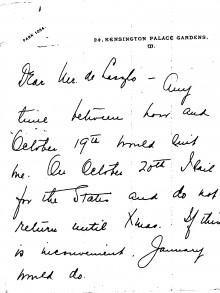 PARK 1254.
24, KENSINGTON PALACE GARDENS.
Dear Mr. de Laszlo – Any
time between now and
October 19th would suit
me. On October 20th I sail
for the States and do not
return until Xmas. If this
is inconvenient, January
would do.